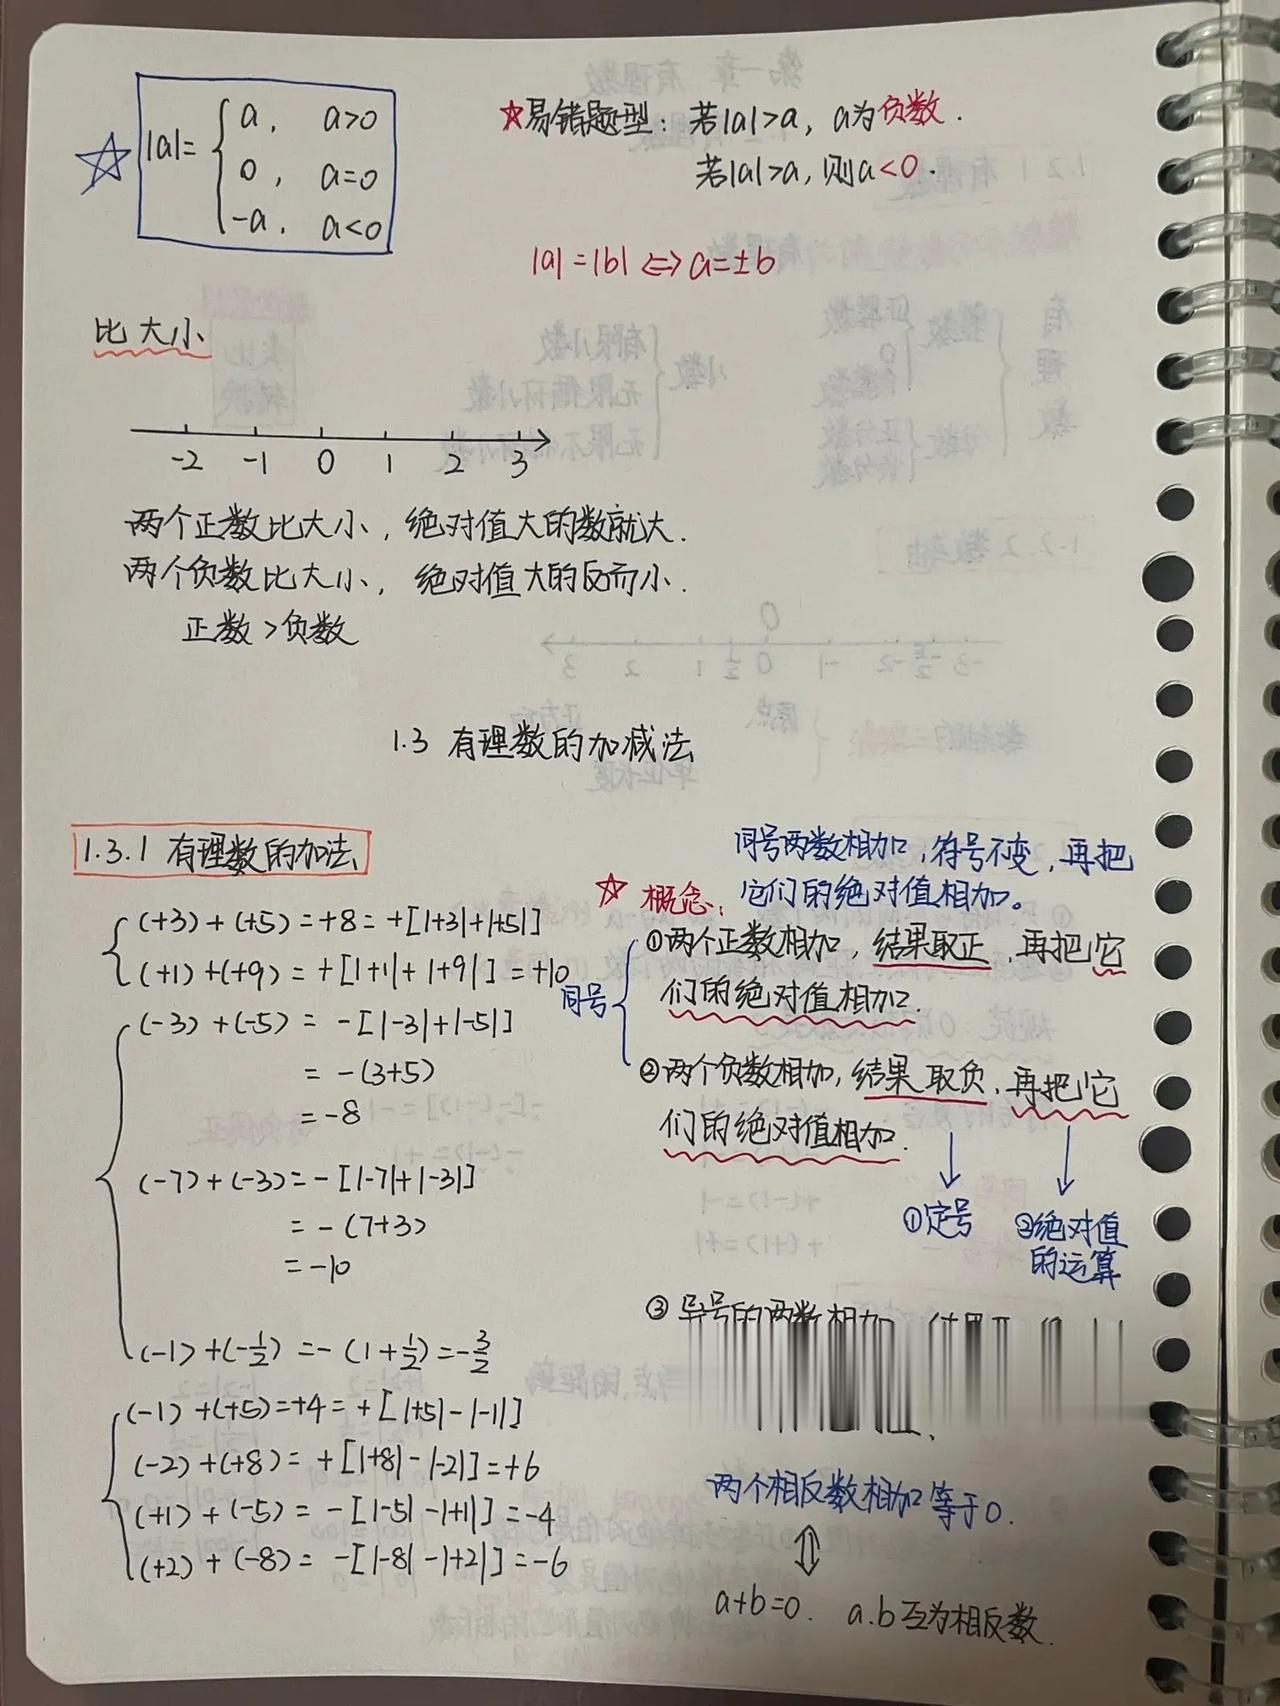 |a|= { a, a>0
0, a=0
-a, a<0
☆易错题型：若|a|>a, a为负数.
若|a|>a, 则a<0.
|a|=|b|⇔a=±b
比大小
-2 -1 0 1 2 3
两个正数比大小, 绝对值大的数就大.
两个负数比大小, 绝对值大的反而小.
正数>负数
1.3 有理数的加减法
1.3.1 有理数的加法
(+3)+(+5)=+8=+[|+3|+|+5|]
(+1)+(+9)=+[|+1|+|+9|]=+10
(-3)+(-5)= -[|-3|+|-5|]
= -(3+5)
= -8
(-7)+(-3)= -[|-7|+|-3|]
= -(7+3)
= -10
(-1)+(-1/2)= -(1+1/2)=-3/2
(-1)+(+5)=+4=+[|+5|-|-1|]
(-2)+(+8)= +[|+8|-|-2|]=+6
(+1)+(-5)= -[|-5|-|+1|]=-4
(+2)+(-8)= -[|-8|-|+2|]=-6
同号两数相加, 符号不变, 再把
它们的绝对值相加。
☆ 概念：
同号
①两个正数相加, 结果取正, 再把它
们的绝对值相加.
②两个负数相加, 结果取负, 再把它
们的绝对值相加.
①定号
②绝对值
的运算
③ 异号的两数相加
两个相反数相加等于0.
a+b=0. a.b互为相反数.